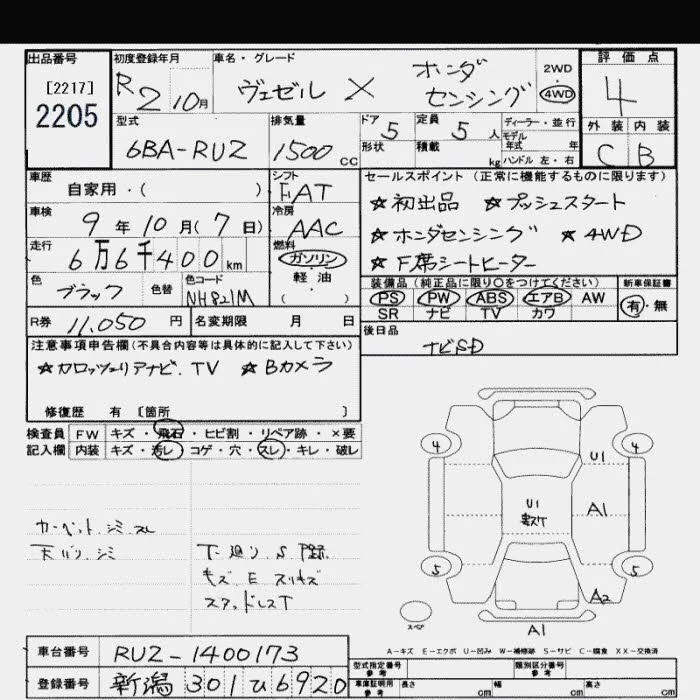 出品番号
[2217]
2205
初度登録年月
R2 10月
車名・グレード
ヴェゼル X ホンダセンシング
2WD
4WD
評価点
4
外装 内装
C B
型式
6BA-RU2
排気量
1500 cc
ドア 5
形状
定員 5 人
積載 kg
ディーラー・並行
モデル
年式 年
ハンドル 左・右
車歴
自家用・( )
シフト
FAT
車検
9年10月(7日)
冷房
AAC
走行
6万6千400km
燃料
ガソリン
軽・油
( )
色
ブラック
色替
色コード
NH821M
R券 11,050 円
名変期限 月 日
セールスポイント(正常に機能するものに限ります)
☆初出品 ☆プッシュスタート
☆ホンダセンシング ☆4WD
☆F席シートヒーター
装備品(純正品に限り○をつけてください)
新車保証書
PS PW ABS エアB AW
SR ナビ TV カワ
有・無
後日品
ナビSD
注意事項申告欄(不具合内容等は具体的に記入して下さい)
☆カロッツェリアナビ.TV ☆Bカメラ
修復歴 有 [箇所 ]
検査員 FW キズ・飛石・ヒビ割・リペア跡・×要
記入欄 内装 キズ・汚レ・コゲ・穴・スレ・キレ・破レ
カーペット.シミ スレ
天バリ.シミ
下廻り S
キズ E スリキズ
スタッドレスT
4
4
U1
U1
A1
5
5
A2
スペア
A1
A-キズ E-エクボ U-凹み W-補修跡 S-サビ C-腐食 XX-交換済
車台番号
RU2-1400173
登録番号
新潟 301 ひ 6920
型式指定番号
参考
類別区分番号
参考
車庫証明用
参考
長さ cm
幅 cm
高さ cm